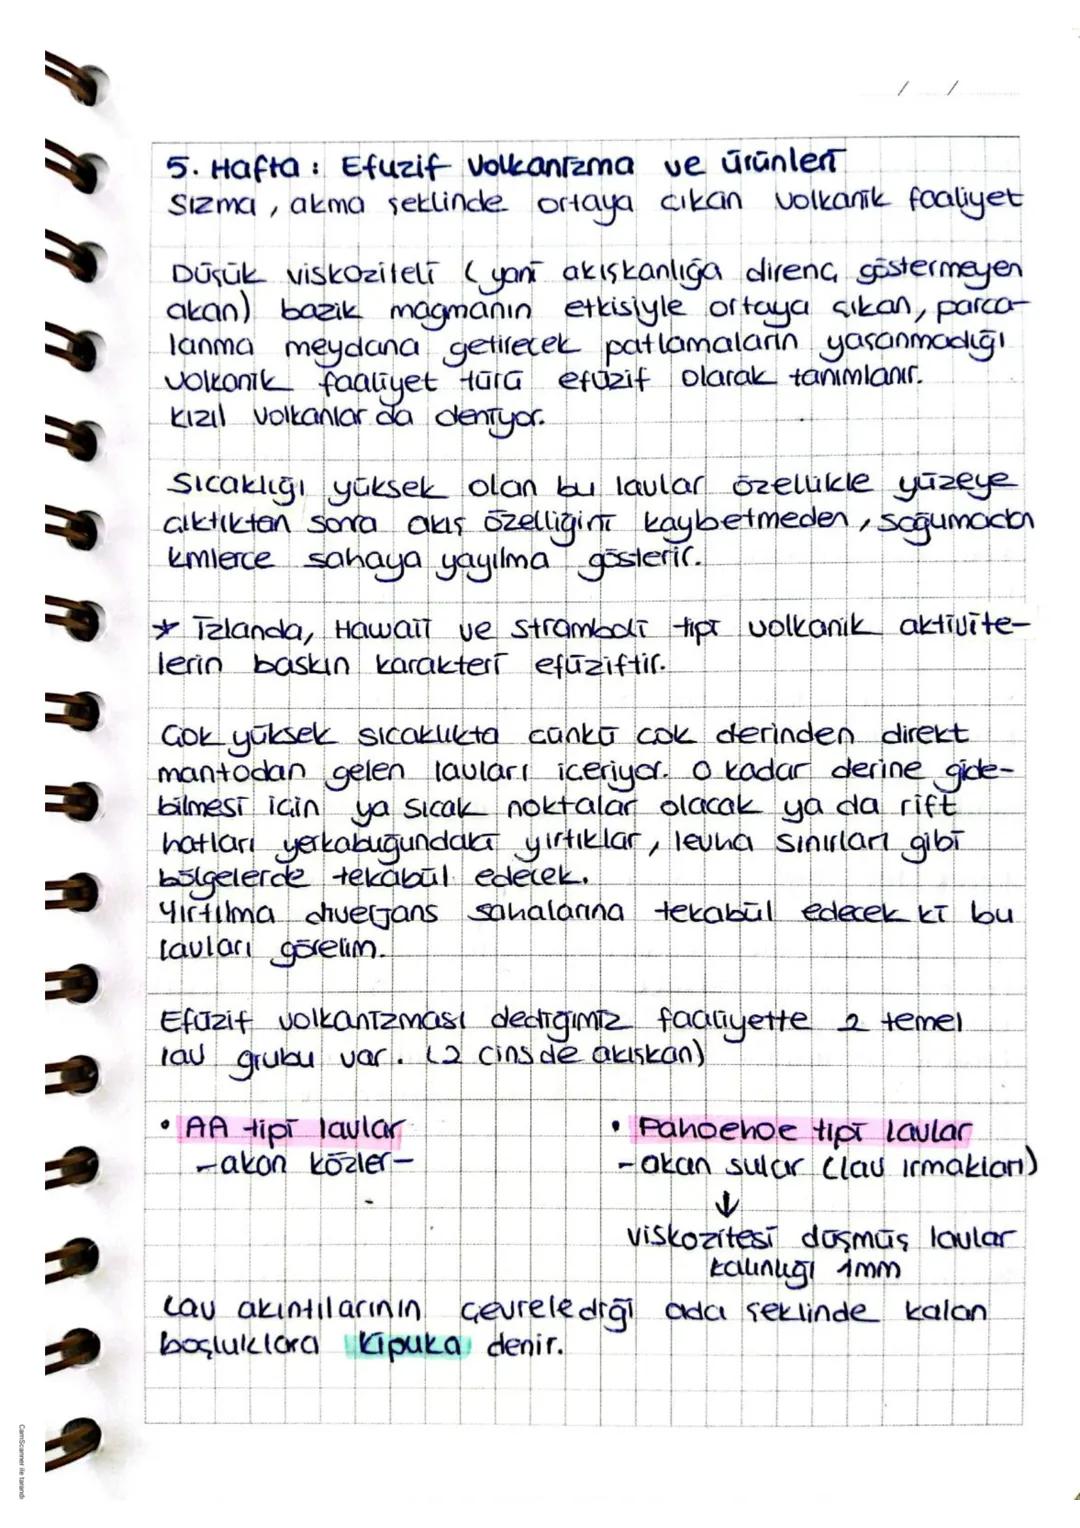 / /
5. Hafta : Efuzif Volkanizma ve ürünleri
Sızma, akma şeklinde ortaya çıkan volkanik faaliyet
Düşük viskoziteli (yani akışkanlığa direnç göstermeyen
akan) bazik magmanın etkisiyle ortaya çıkan, parça-
lanma meydana getirecek patlamaların yaşanmadığı
volkanik faaliyet türü efüzif olarak tanımlanır.
Kızıl volkanlar da deniyor.
Sıcaklığı yüksek olan bu lavlar özellikle yüzeye
çıktıktan sonra akış özelliğini kaybetmeden, soğumadan
kmlerce sahaya yayılma gösterir.
* İzlanda, Hawaii ve Stramboli tipi volkanik aktivite-
lerin baskın karakteri efüziftir.
Çok yüksek sıcaklıkta çünkü çok derinden direkt
mantodan gelen lavları içeriyor. O kadar derine gide-
bilmesi için ya sıcak noktalar olacak ya da rift
hatları yerkabuğundaki yırtıklar, levha sınırları gibi
bölgelerde tekabül edecek.
Yırtılma diverjans sahalarına tekabül edecek ki bu
lavları görelim.
Efüzif volkanizması dediğimiz faaliyette 2 temel
lav grubu var. (2 cins de akışkan)
• AA tipi lavlar
-akan közler-
• Pahoehoe tipi lavlar
-akan sular (lav ırmakları)
↓
viskozitesi düşmüş lavlar
kalınlığı 1mm
Lav akıntılarının çevrelediği ada şeklinde kalan
boşluklara kipuka denir.
CamScanner ile tarandı